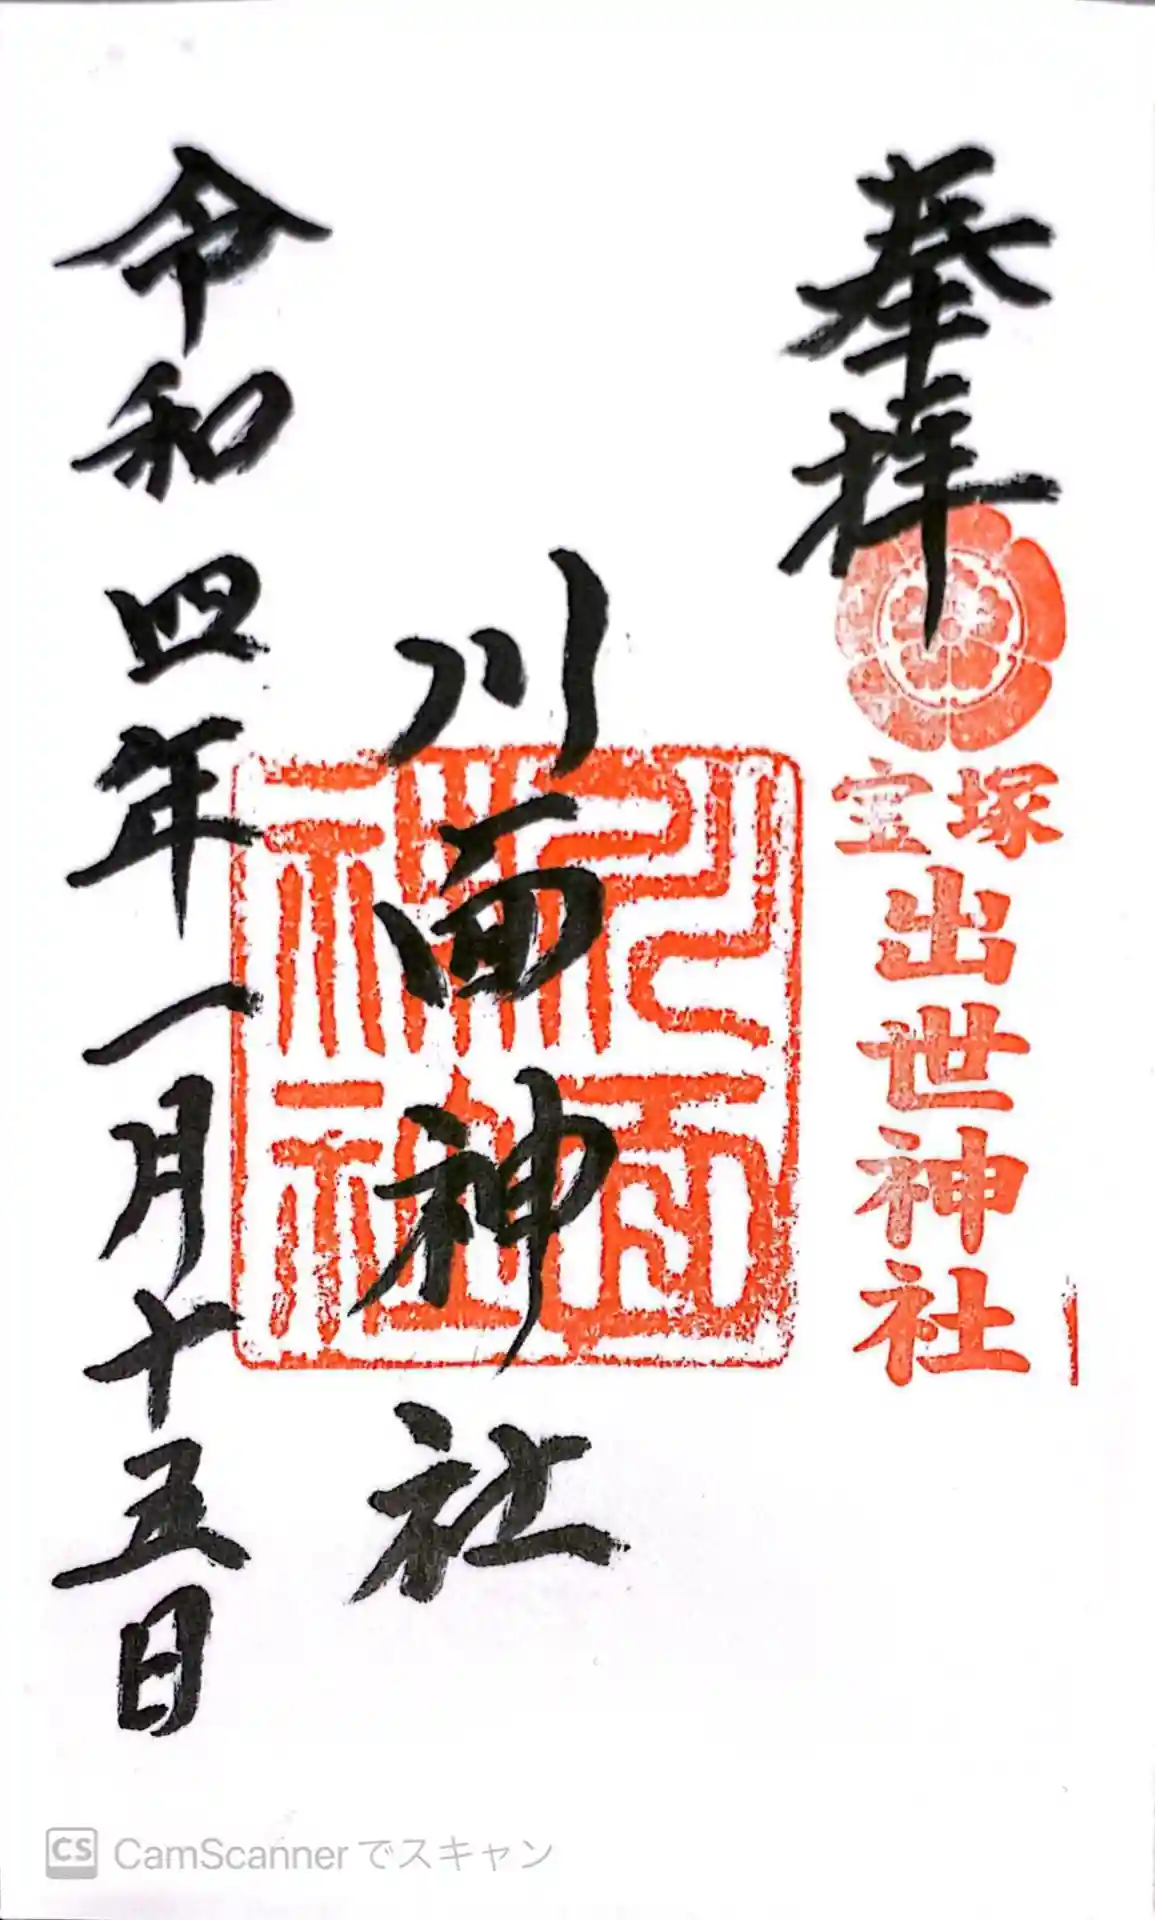 奉拝
宝塚
出世神社
川面神社
令和四年一月十五日
CS CamScannerでスキャン